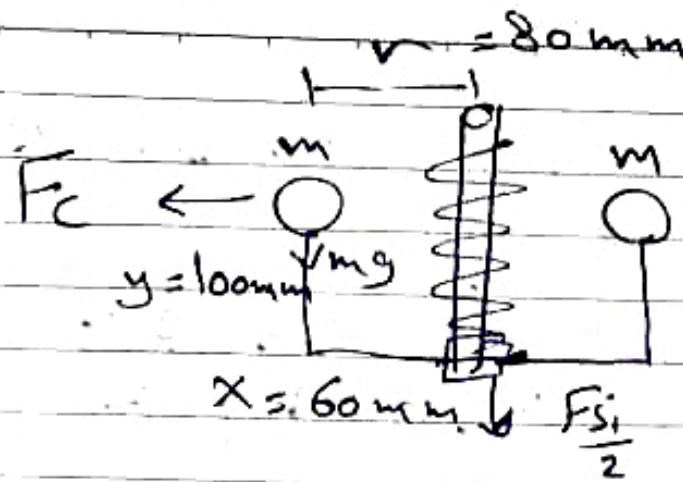 r = 80 mm
m
m
Fc
mg
y = 100mm
x = 60 mm
Fs₁/2